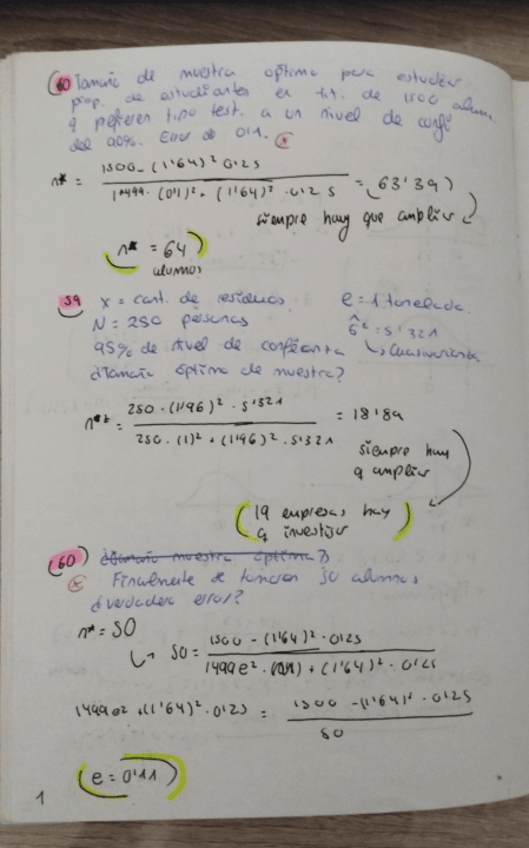 60 Tamaño de muestra óptimo para estudiar
prop. de estudiantes en tit. de 1500 alumn.
q prefieren tipo test. a un nivel de confi
del 90%. Error de 0'1. *
n* = 1500 - (1'64)² 0'25 / 1499 · (0'1)² + (1'64)² · 0'25 = (63'39)
siempre hay que ampliar
n* = 64
alumnos
59 X = cant. de residuos e = 1 tonelada
N = 250 personas σ̂² = 5'321
95% de nivel de confianza ↳ Cuasivarianza
¿Tamaño óptimo de muestra?
n** = 250 · (1'96)² · 5'321 / 250 · (1)² + (1'96)² · 5'321 = 18'89
siempre hay
q ampliar
19 empresas hay
q investigar
(60) ¿Tamaño muestra óptima?
* Finalmente se tomaron 50 alumnos
¿verdadero error?
n* = 50
↳ 50 = 1500 - (1'64)² · 0'25 / 1499 e² · (0'1) + (1'64)² · 0'25
1499 e² + (1'64)² · 0'25 = 1500 - (1'64)² · 0'25 / 50
e = 0'11
1